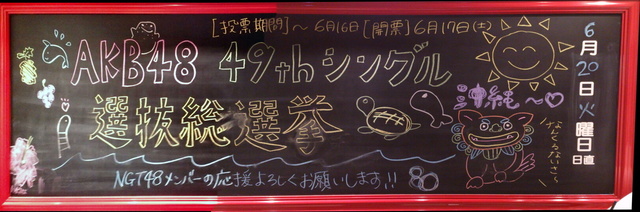 [投票期間]～6月16日[開票]6月17日(土)
AKB48 49thシングル
選抜総選挙
沖縄～♡
なんくるないさ～
NGT48メンバーの応援よろしくお願いします!!
6月20日火曜日
日直